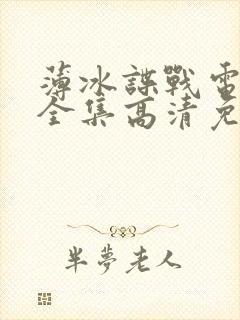 薄冰諜戰電
全集高清免
半夢老人